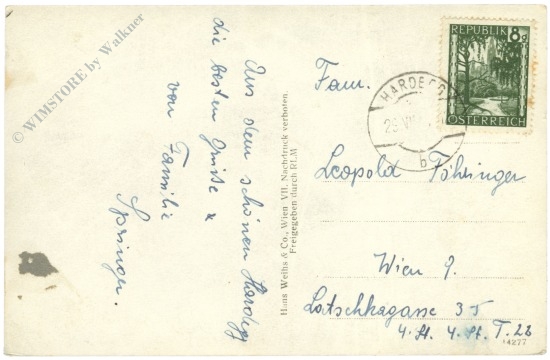 © WIMSTORE by Walkner
Aus dem schönen Hardegg
die besten Grüße
von Familie
Springer.
Hans Weihs & Co., Wien VII. Nachdruck verboten.
Freigegeben durch RLM
REPUBLIK 8g
ÖSTERREICH
HARDEGG
b
Fam.
Leopold Pöhringer
Wien 9.
Latschkagasse 35
4. St. 4. St. T. 22
14277